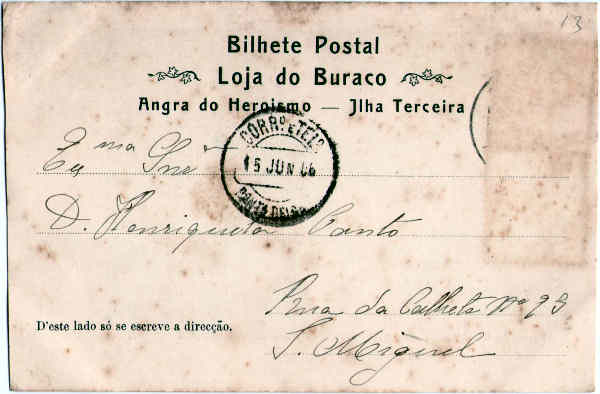 13
Bilhete Postal
Loja do Buraco
Angra do Heroismo — Ilha Terceira
CORR.º E TEL.º
15 JUN 06
PONTA DELGADA
Exma Snra
D. Henriqueta Canto
Rua da Calheta Nº 23
S. Miguel
D'este lado só se escreve a direcção.